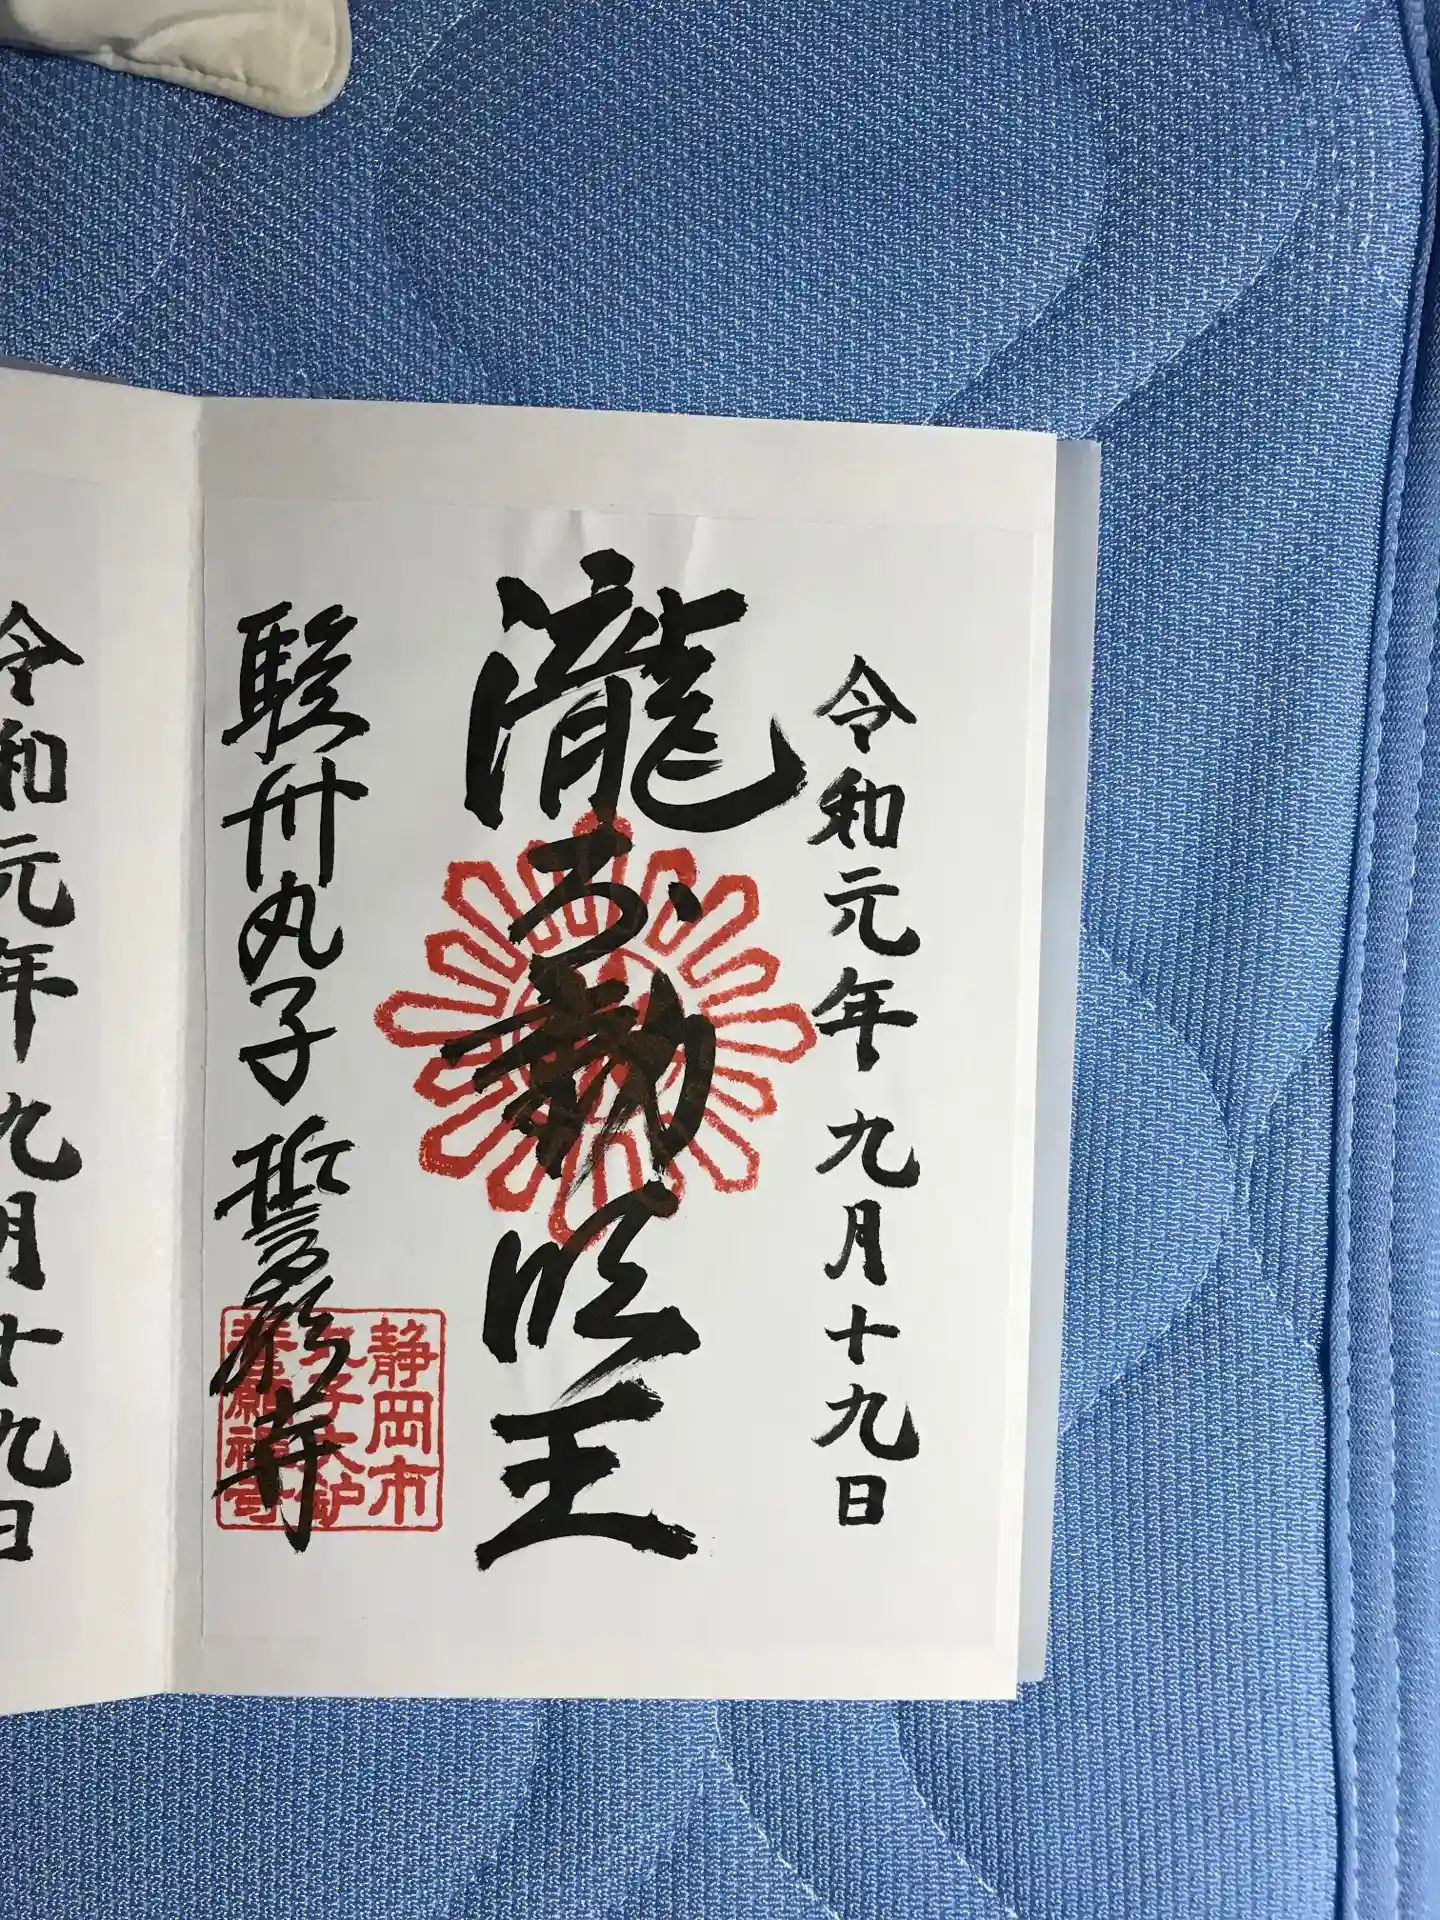 令和元年九月十九日
瀧不動明王
駿州丸子誓願寺
静岡市
丸子大炉
誓願禅寺
令和元年九月十九日